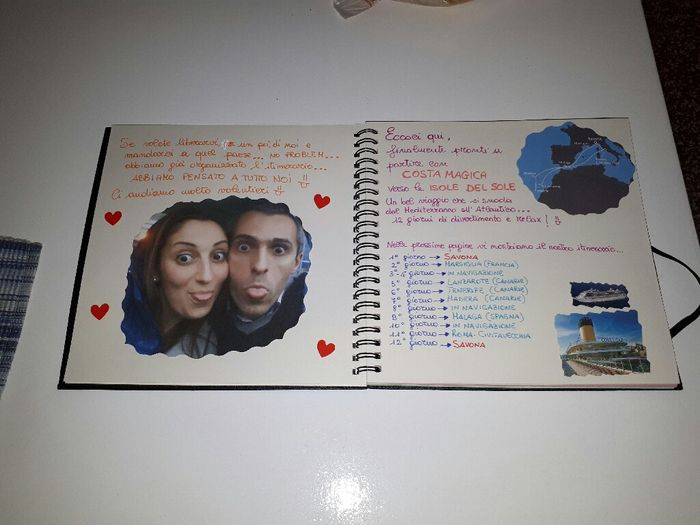 Se volete liberarvi un pò di noi e
mandarci a quel paese... NO PROBLEM...
abbiamo già organizzato l'itinerario...
ABBIAMO PENSATO A TUTTO NOI !!
Ci andiamo molto volentieri
Eccoci qui,
finalmente pronti a
partire con
COSTA MAGICA
verso le ISOLE DEL SOLE
Un bel viaggio che si snoda
dal Mediterraneo all'Atlantico...
12 giorni di divertimento e Relax!
Nelle prossime pagine vi mostriamo il nostro itinerario...
1° giorno → SAVONA
2° giorno → MARSIGLIA (FRANCIA)
3°-4° giorno → IN NAVIGAZIONE
5° giorno → LANZAROTE (CANARIE)
6° giorno → TENERIFE (CANARIE)
7° giorno → MADERA (CANARIE)
8° giorno → IN NAVIGAZIONE
9° giorno → MALAGA (SPAGNA)
10° giorno → IN NAVIGAZIONE
11° giorno → ROMA-CIVITAVECCHIA
12° giorno → SAVONA